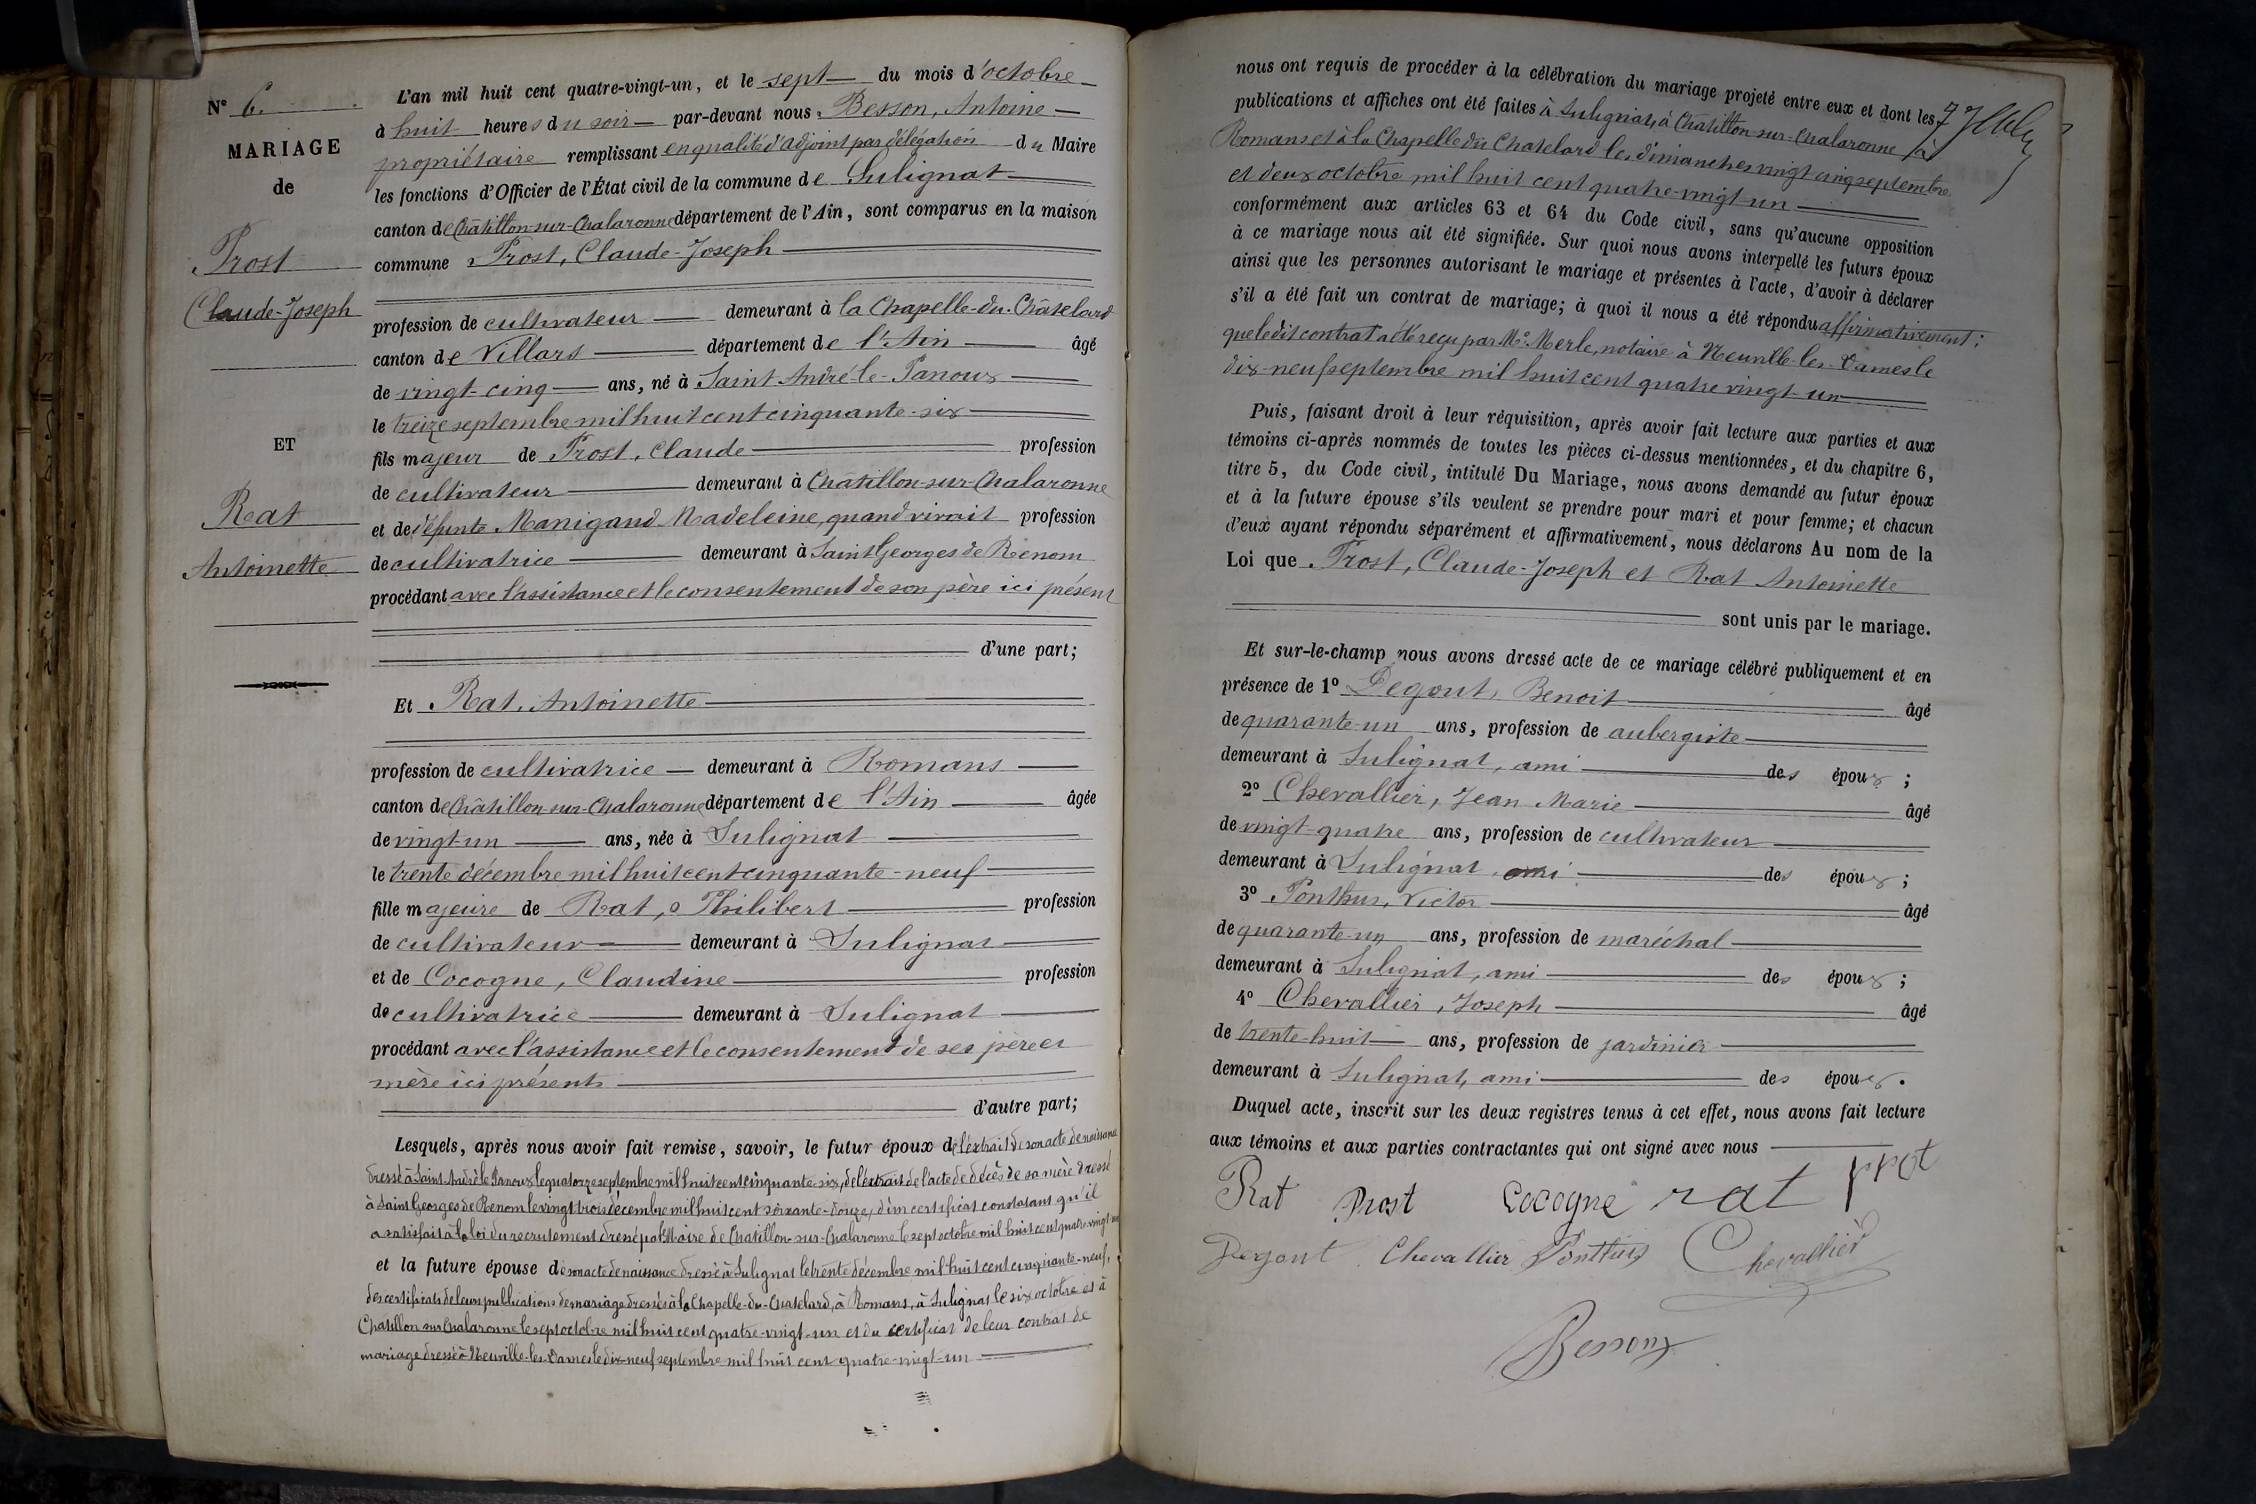 N° 6.
MARIAGE
de
Prost
Claude-Joseph
ET
Rat
Antoinette
L'an mil huit cent quatre-vingt-un, et le sept du mois d'octobre
à huit heures du soir par-devant nous, Besson, Antoine
propriétaire remplissant en qualité d'adjoint par délégation du Maire
les fonctions d'Officier de l'État civil de la commune de Sulignat
canton de Châtillon-sur-Chalaronne département de l'Ain, sont comparus en la maison
commune Prost, Claude-Joseph
profession de cultivateur demeurant à la Chapelle-du-Châtelard
canton de Villars département de l'Ain âgé
de vingt-cinq ans, né à Saint André-le-Panoux
le treize septembre mil huit cent cinquante-six
fils majeur de Prost, Claude profession
de cultivateur demeurant à Châtillon-sur-Chalaronne
et de défunte Manigand Madeleine, quand vivait profession
de cultivatrice demeurant à Saint Georges de Renom
procédant avec l'assistance et le consentement de son père ici présent
d'une part;
Et Rat, Antoinette
profession de cultivatrice demeurant à Romans
canton de Châtillon-sur-Chalaronne département de l'Ain âgée
de vingt-un ans, née à Sulignat
le trente décembre mil huit cent cinquante-neuf
fille majeure de Rat, Philibert profession
de cultivateur demeurant à Sulignat
et de Cocogne, Claudine profession
de cultivatrice demeurant à Sulignat
procédant avec l'assistance et le consentement de ses père et
mère ici présents
d'autre part;
Lesquels, après nous avoir fait remise, savoir, le futur époux de l'extrait de son acte de naissance
dressé à Saint André le Panoux le quatorze septembre mil huit cent cinquante-six, de l'extrait de l'acte de décès de sa mère dressé
à Saint Georges de Renom le vingt trois décembre mil huit cent soixante-douze, d'un certificat constatant qu'il
a satisfait à la loi du recrutement dressé par le Maire de Chatillon-sur-Chalaronne le sept octobre mil huit cent quatre-vingt-un
et la future épouse de son acte de naissance dressé à Sulignat le trente décembre mil huit cent cinquante-neuf,
des certificats de leurs publications de mariage dressés à la Chapelle-du-Chatelard, à Romans, à Sulignat le six octobre et à
Chatillon sur Chalaronne le sept octobre mil huit cent quatre-vingt-un et du certificat de leur contrat de
mariage dressé à Neuville-les-Dames le dix-neuf septembre mil huit cent quatre-vingt-un
nous ont requis de procéder à la célébration du mariage projeté entre eux et dont les
publications et affiches ont été faites à Sulignat, à Châtillon-sur-Chalaronne, à
Romans et à la Chapelle du Chatelard les dimanches vingt-cinq septembre
et deux octobre mil huit cent quatre-vingt-un
conformément aux articles 63 et 64 du Code civil, sans qu'aucune opposition
à ce mariage nous ait été signifiée. Sur quoi nous avons interpellé les futurs époux
ainsi que les personnes autorisant le mariage et présentes à l'acte, d'avoir à déclarer
s'il a été fait un contrat de mariage; à quoi il nous a été répondu affirmativement;
que le dit contrat a été reçu par Me Merle, notaire à Neuville-les-Dames le
dix-neuf septembre mil huit cent quatre vingt-un
Puis, faisant droit à leur réquisition, après avoir fait lecture aux parties et aux
témoins ci-après nommés de toutes les pièces ci-dessus mentionnées, et du chapitre 6,
titre 5, du Code civil, intitulé Du Mariage, nous avons demandé au futur époux
et à la future épouse s'ils veulent se prendre pour mari et pour femme; et chacun
d'eux ayant répondu séparément et affirmativement, nous déclarons Au nom de la
Loi que Prost, Claude-Joseph et Rat Antoinette
sont unis par le mariage.
Et sur-le-champ nous avons dressé acte de ce mariage célébré publiquement et en
présence de 1° Degout, Benoit âgé
de quarante-un ans, profession de aubergiste
demeurant à Sulignat, ami des époux;
2° Chevallier, Jean Marie âgé
de vingt-quatre ans, profession de cultivateur
demeurant à Sulignat ami des époux;
3° Ponthus, Victor âgé
de quarante-un ans, profession de maréchal
demeurant à Sulignat, ami des époux;
4° Chevallier, Joseph âgé
de trente-huit ans, profession de jardinier
demeurant à Sulignat, ami des époux.
Duquel acte, inscrit sur les deux registres tenus à cet effet, nous avons fait lecture
aux témoins et aux parties contractantes qui ont signé avec nous
Rat Prost Cocogne rat prot
Degout Chevallier Ponthus Chevallier
Besson